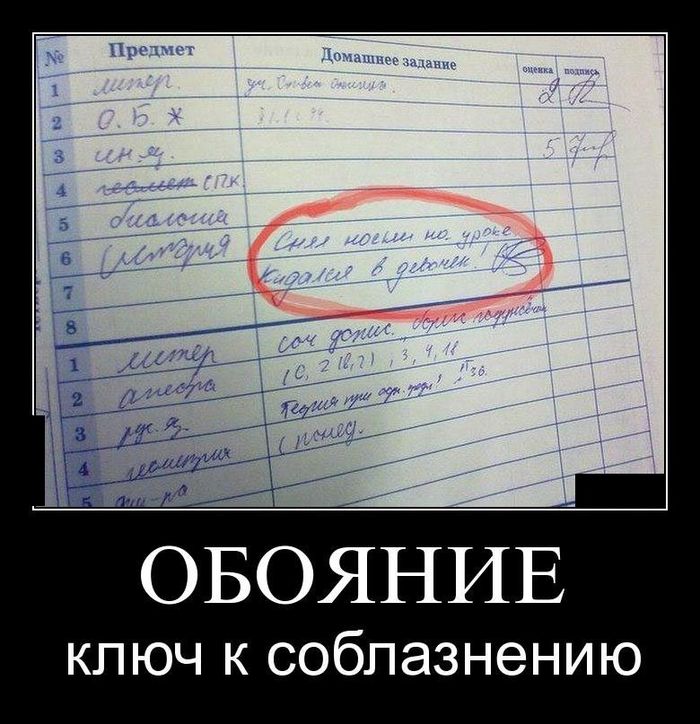 № Предмет Домашнее задание оценка подпись
1 литер. уч. Ответ 2
2 О.Б.Ж
3 ин.яз. 5
4 геомет СПК
5 биология
6 история Снял носки на уроке.
7 Кидался в девочек!
8
1 литер соч допис.
2 алгебра 3, 4, 18
3 рус. яз. Теория при
4 геометрия
5 физ-ра
ОБОЯНИЕ
ключ к соблазнению